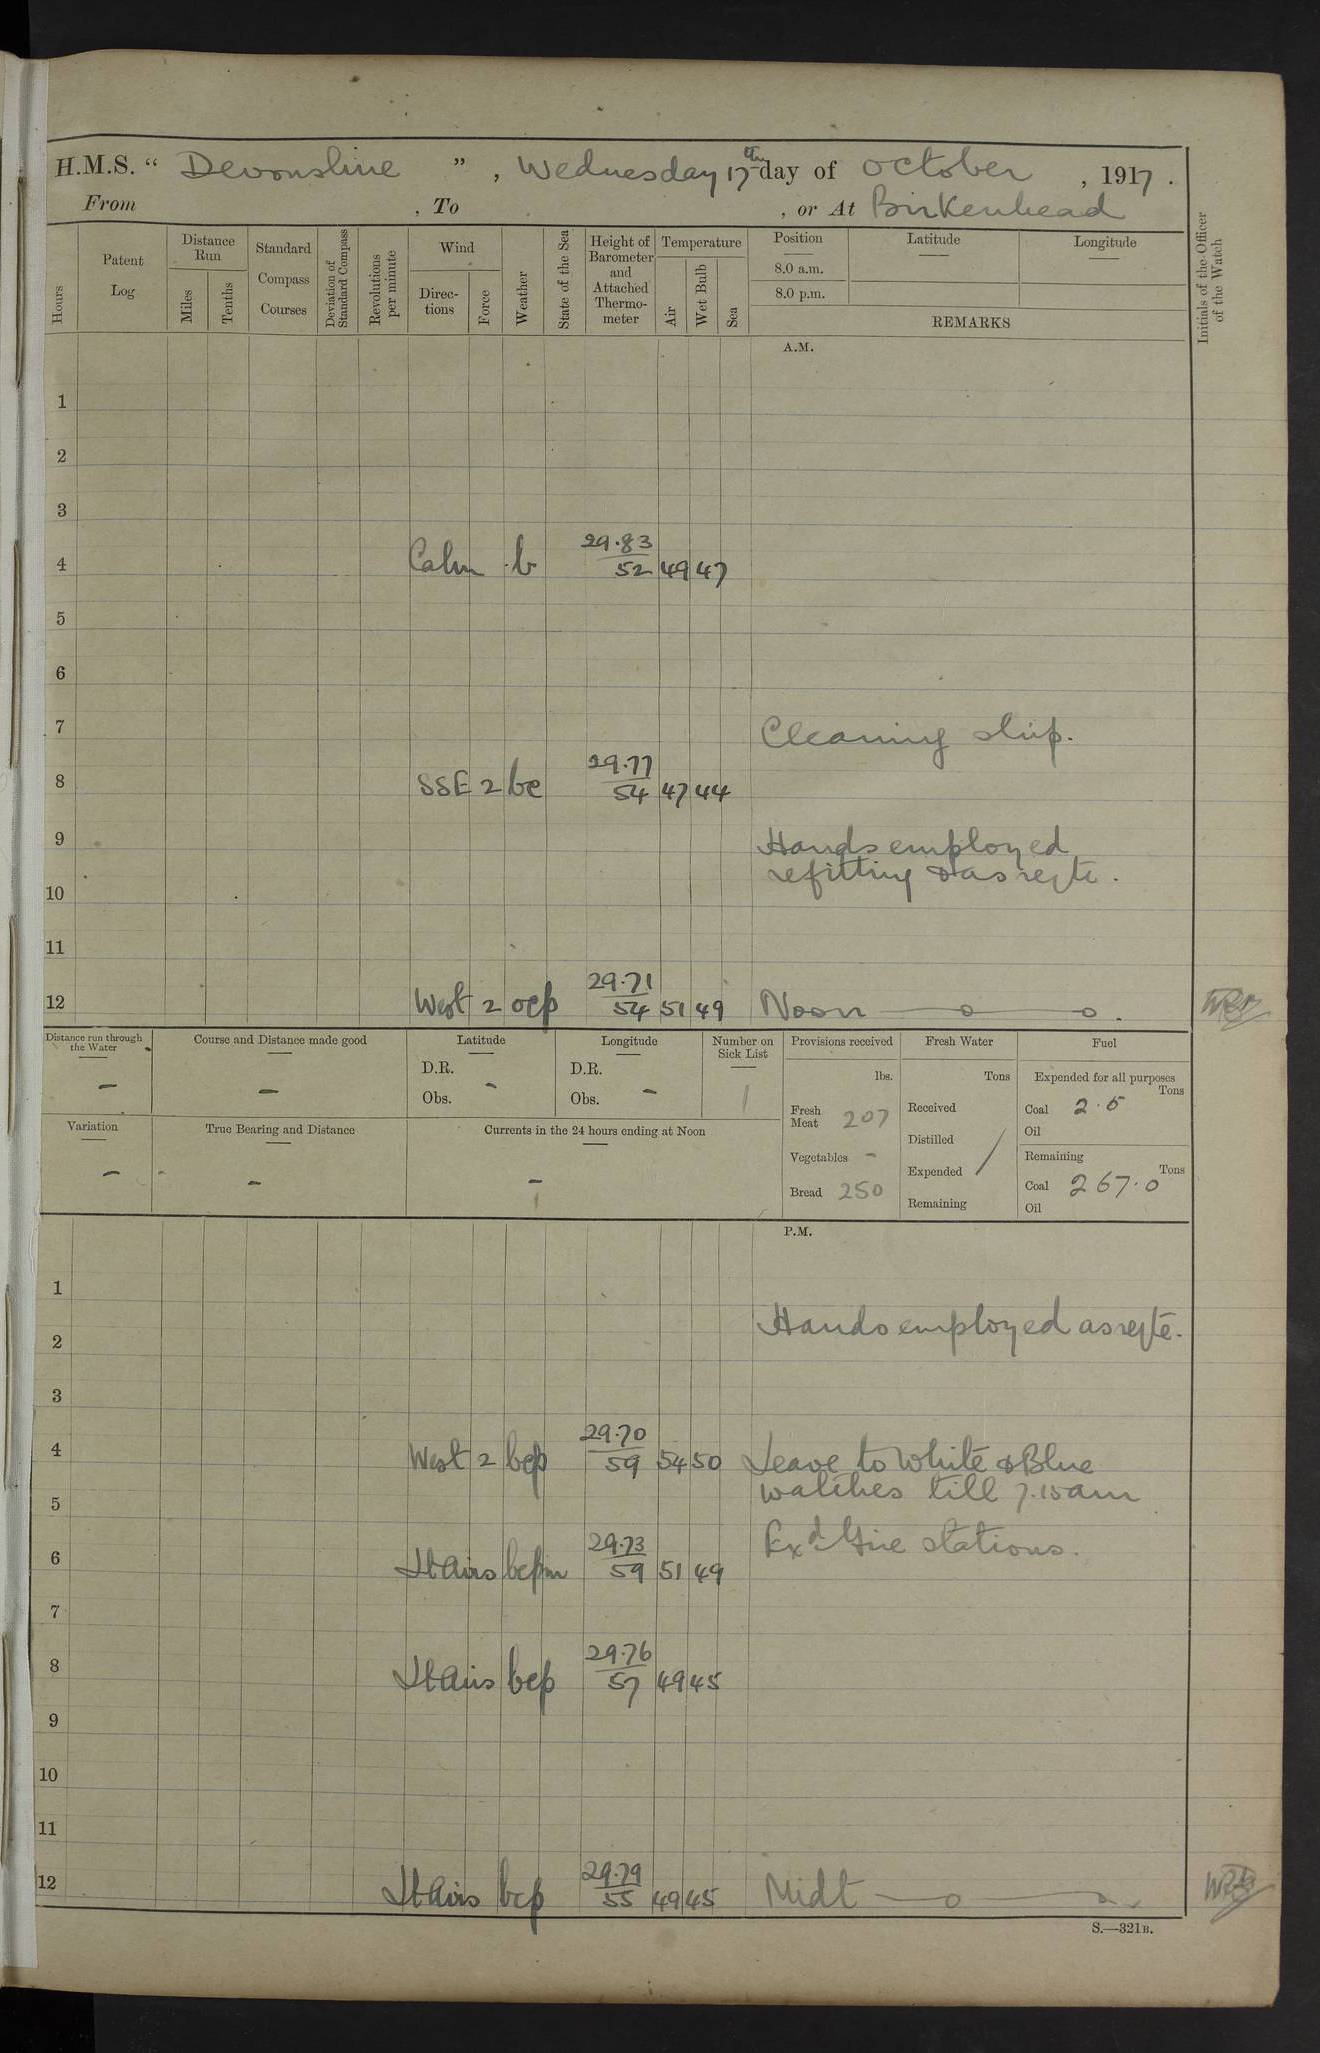 H.M.S. “ Devonshire ” , Wednesday 17th day of October , 1917 .
From , To , or At Birkenhead
Hours
Patent Log
Distance Run
Miles
Tenths
Standard Compass Courses
Deviation of Standard Compass
Revolutions per minute
Wind
Direc-tions
Force
Weather
State of the Sea
Height of Barometer and Attached Thermo-meter
Temperature
Air
Wet Bulb
Sea
Position
8.0 a.m.
8.0 p.m.
Latitude
Longitude
REMARKS
Initials of the Officer of the Watch
A.M.
1
2
3
29.83
4 Calm b 52 49 47
5
6
7 Cleaning ship.
29.77
8 SSE 2 bc 54 47 44
9 Hands employed
refitting & as reqte.
10
11
29.71
12 West 2 ocp 54 51 49 Noon
Distance run through the Water –
Course and Distance made good –
Latitude
D.R.
Obs. –
Longitude
D.R.
Obs. –
Number on Sick List
1
Provisions received
lbs.
Fresh Meat 207
Vegetables –
Bread 250
Fresh Water
Tons
Received
Distilled
Expended /
Remaining
Fuel
Expended for all purposes
Tons
Coal 2.5
Oil
Remaining
Tons
Coal 267.0
Oil
Variation –
True Bearing and Distance –
Currents in the 24 hours ending at Noon –
P.M.
1
Hands employed as reqte.
2
3
29.70
4 West 2 bcp 59 54 50 Leave to White & Blue
watches till 7.15am
5
Exd Fire stations.
29.73
6 Lt Airs bcpm 59 51 49
7
29.76
8 Lt Airs bcp 57 49 45
9
10
11
29.79
12 Lt Airs bcp 55 49 45 Midt
S.—321B.